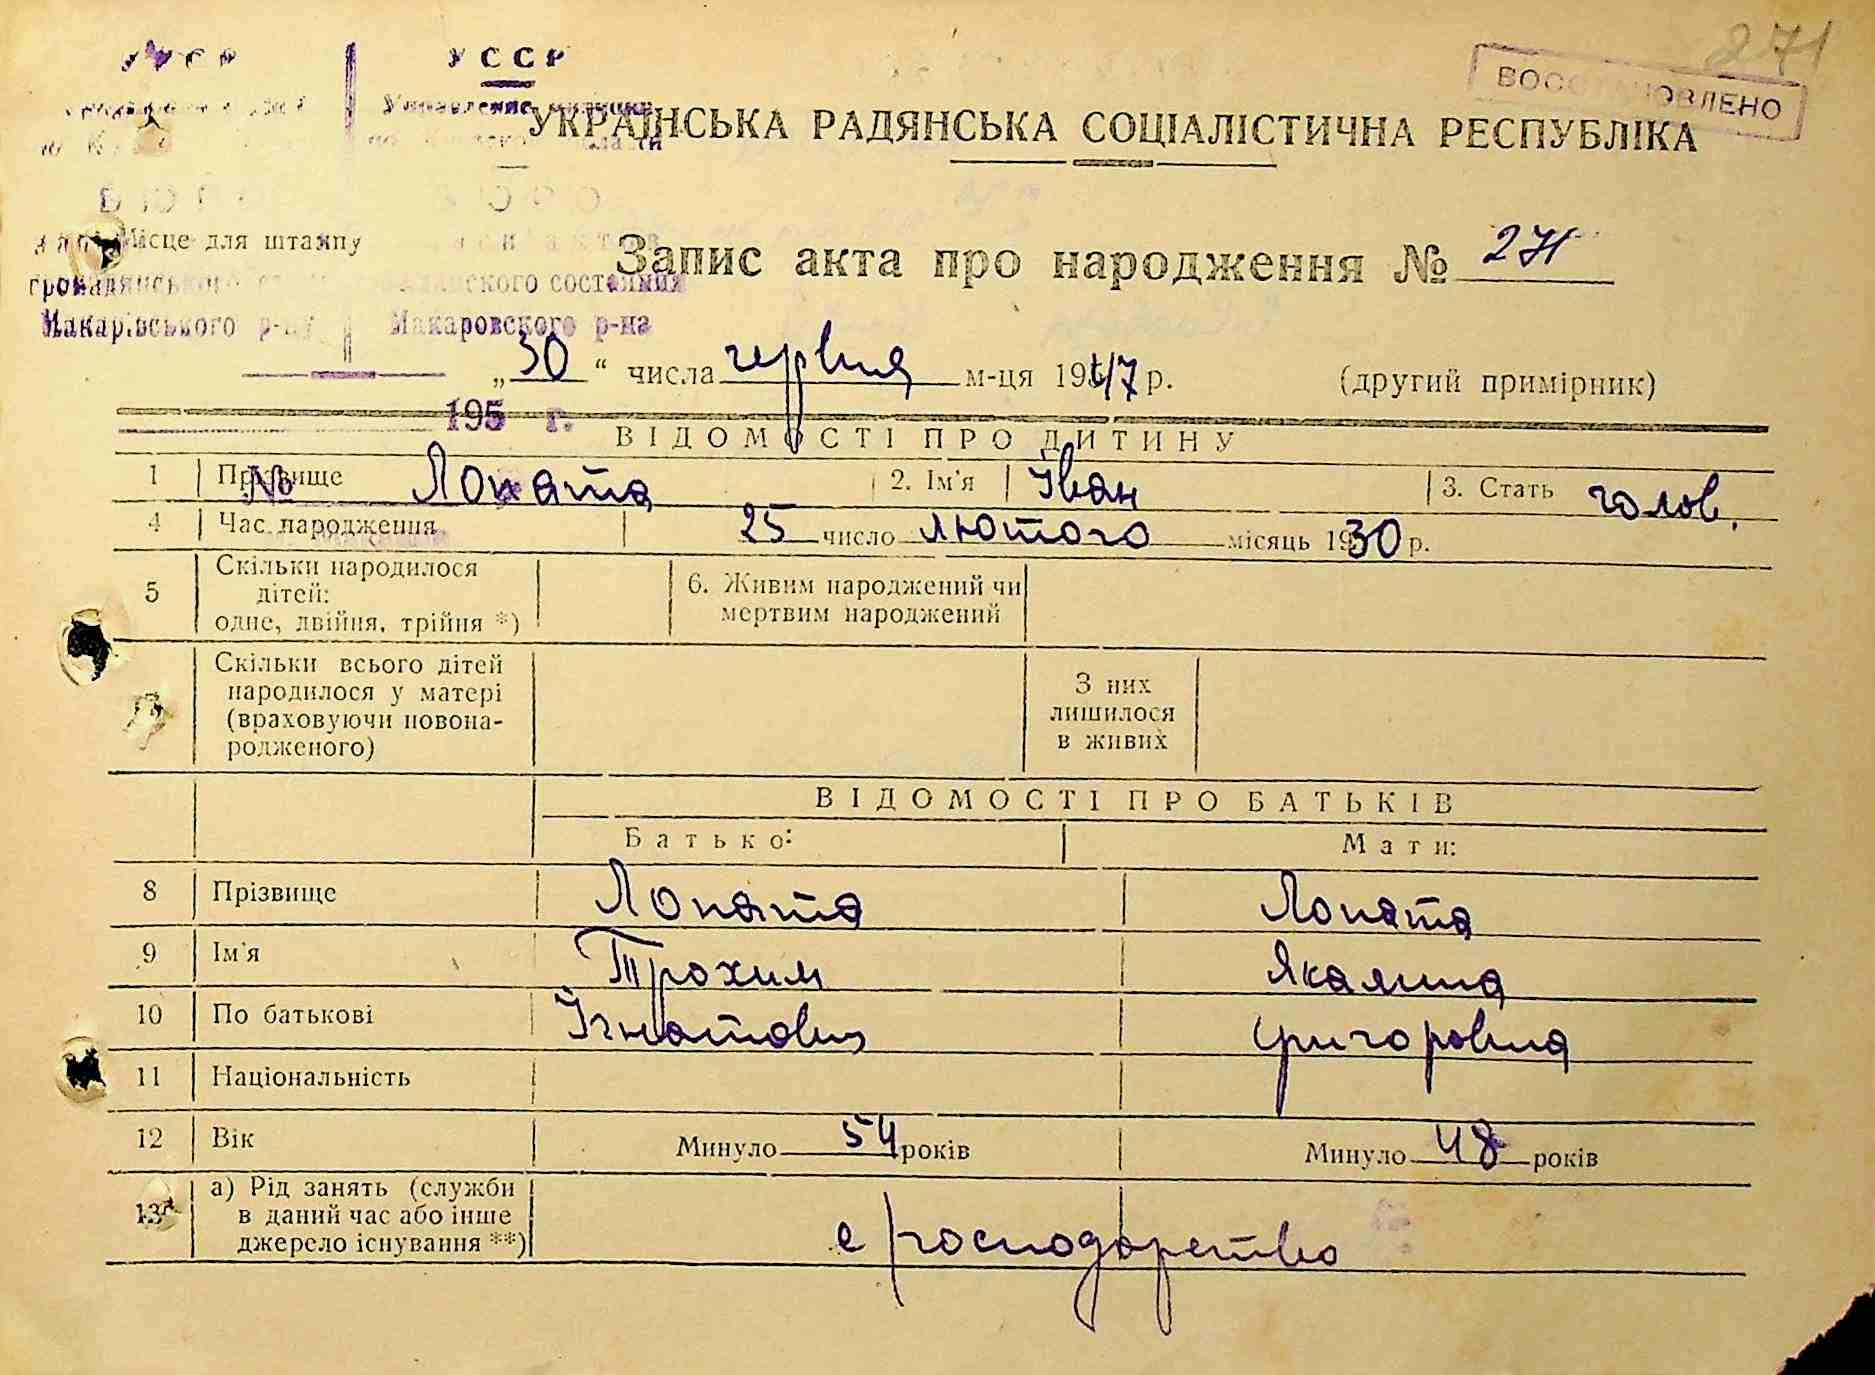 271
УССР
ВОССТАНОВЛЕНО
Управление милиции
УКРАЇНСЬКА РАДЯНСЬКА СОЦІАЛІСТИЧНА РЕСПУБЛІКА
Місце для штампу
Запис акта про народження № 271
громадянського состояния
Макарівського р-ну Макаровского р-на
„30“ числа червня м-ця 1947 р. (другий примірник)
195 г.
ВІДОМОСТІ ПРО ДИТИНУ
1 Прізвище Лопата 2. Ім'я Іван 3. Стать голов.
№
4 Час народження 25 число лютого місяць 1930 р.
5 Скільки народилося дітей: одне, двійня, трійня *) 6. Живим народжений чи мертвим народжений
7 Скільки всього дітей народилося у матері (враховуючи новонародженого) З них лишилося в живих
ВІДОМОСТІ ПРО БАТЬКІВ
Батько: Мати:
8 Прізвище Лопата Лопата
9 Ім'я Трохим Якалина
10 По батькові Ігнатович Григоровна
11 Національність
12 Вік Минуло 54 років Минуло 48 років
13 а) Рід занять (служби в даний час або інше джерело існування **) с/господарство